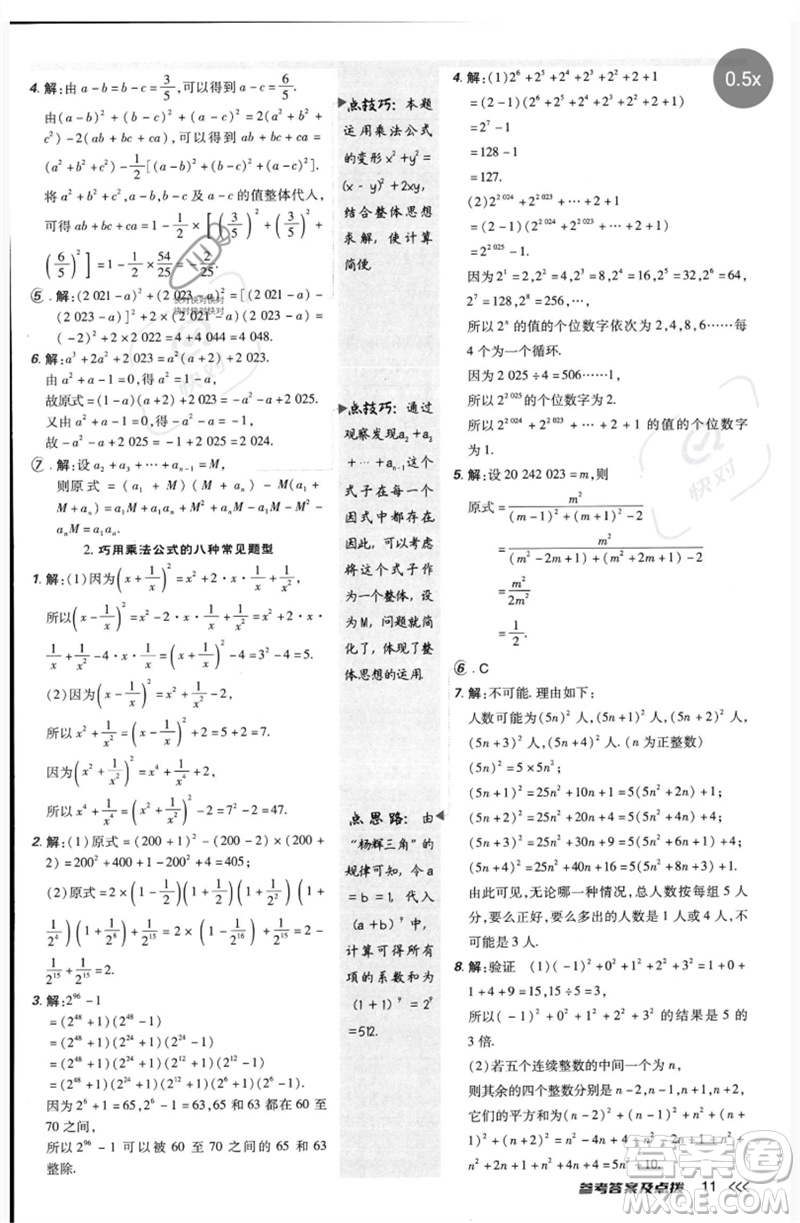 4. 解:由 a-b=b-c=3/5,可以得到 a-c=6/5.
由(a-b)²+(b-c)²+(a-c)²=2(a²+b²+
c²)-2(ab+bc+ca),可以得到 ab+bc+ca=
(a²+b²+c²)-1/2[(a-b)²+(b-c)²+(a-c)²].
将 a²+b²+c²,a-b,b-c 及 a-c 的值整体代入,
可得 ab+bc+ca=1-1/2×[(3/5)²+(3/5)²+
(6/5)²]=1-1/2×54/25=-2/25.
⑤.解:(2 021-a)²+(2 023-a)²=[(2 021-a)-
(2 023-a)]²+2×(2 021-a)(2 023-a)=
(-2)²+2×2 022=4+4 044=4 048.
6. 解:a³+2a²+2 023=a²(a+2)+2 023.
由 a²+a-1=0,得 a²=1-a,
故原式=(1-a)(a+2)+2 023=-a²-a+2 025.
又由 a²+a-1=0,得 -a²-a=-1,
故 -a²-a+2 025=-1+2 025=2 024.
⑦.解:设 a₂+a₃+⋯+aₙ₋₁=M,
则原式=(a₁+M)(M+aₙ)-(a₁+
M+aₙ)M=a₁M+a₁aₙ+M²+aₙM-a₁M-M²-
aₙM=a₁aₙ.
2. 巧用乘法公式的八种常见题型
1. 解:(1)因为(x+1/x)²=x²+2·x·1/x+1/x²,
所以(x-1/x)²=x²-2·x·1/x+1/x²=x²+2·x·
1/x+1/x²-4·x·1/x=(x+1/x)²-4=3²-4=5.
(2)因为(x-1/x)²=x²-2+1/x²,
所以 x²+1/x²=(x-1/x)²+2=5+2=7.
因为(x²+1/x²)²=x⁴+1/x⁴+2,
所以 x⁴+1/x⁴=(x²+1/x²)²-2=7²-2=47.
2. 解:(1)原式=(200+1)²-(200-1)(200+2)=
200²+400+1-200²-200+2²=4+405;
(2)原式=2×(1-1/2)(1+1/2)(1+1/2²)(1+
1/2⁴)(1+1/2⁸)+1/2¹⁵=2×(1-1/2¹⁶)+1/2¹⁵=2-
1/2¹⁵+1/2¹⁵=2.
3. 解:2⁹⁶-1
=(2⁴⁸+1)(2⁴⁸-1)
=(2⁴⁸+1)(2²⁴+1)(2²⁴-1)
=(2⁴⁸+1)(2²⁴+1)(2¹²+1)(2¹²-1)
=(2⁴⁸+1)(2²⁴+1)(2¹²+1)(2⁶+1)(2⁶-1).
因为 2⁶+1=65,2⁶-1=63,65 和 63 都在 60 至
70 之间,
所以 2⁹⁶-1 可以被 60 至 70 之间的 65 和 63
整除.
点技巧:本题
运用乘法公式
的变形 x²+y²=
(x-y)²+2xy,
结合整体思想
求解,使计算
简便.
点技巧:通过
观察发现a₂+a₃
+⋯+aₙ₋₁这个
式子在每一个
因式中都存在
因此,可以考虑
将这个式子作
为一个整体,设
为M,问题就简
化了,体现了整
体思想的运用.
点思路:由
“杨辉三角”的
规律可知,令a
=b=1,代入
(a+b)⁹中,
计算可得所有
项的系数和为
(1+1)⁹=2⁹
=512.
0.5x
4. 解:(1)2⁶+2⁵+2⁴+2³+2²+2+1
=(2-1)(2⁶+2⁵+2⁴+2³+2²+2+1)
=2⁷-1
=128-1
=127.
(2)2²⁰²⁴+2²⁰²³+⋯+2²+2+1
=(2-1)(2²⁰²⁴+2²⁰²³+⋯+2²+2+1)
=2²⁰²⁵-1.
因为 2¹=2,2²=4,2³=8,2⁴=16,2⁵=32,2⁶=
64,2⁷=128,2⁸=256,⋯,
所以 2ⁿ 的值的个位数字依次为 2,4,8,6……每
4 个为一个循环.
因为 2 025÷4=506……1,
所以 2²⁰²⁵ 的个位数字为 2.
所以 2²⁰²⁴+2²⁰²³+⋯+2²+2+1 的值的个位数字
为 1.
5. 解:设 20 242 023=m,则
原式=m²/((m-1)²+(m+1)²-2)
=m²/((m²-2m+1)+(m²+2m+1)-2)
=m²/2m²
=1/2.
⑥.C
7. 解:不可能. 理由如下:
人数可能为(5n)² 人,(5n+1)² 人,(5n+2)² 人,
(5n+3)² 人,(5n+4)² 人.(n 为正整数)
(5n)²=5×5n²;
(5n+1)²=25n²+10n+1=5(5n²+2n)+1;
(5n+2)²=25n²+20n+4=5(5n²+4n)+4;
(5n+3)²=25n²+30n+9=5(5n²+6n+1)+4;
(5n+4)²=25n²+40n+16=5(5n²+8n+3)+1.
由此可见,无论哪一种情况,总人数按每组 5 人
分,要么正好,要么多出的人数是 1 人或 4 人,不
可能是 3 人.
8. 解:验证 (1)(-1)²+0²+1²+2²+3²=1+0+
1+4+9=15,15÷5=3,
所以(-1)²+0²+1²+2²+3² 的结果是 5 的
3 倍.
(2)若五个连续整数的中间一个为 n,
则其余的四个整数分别是 n-2,n-1,n+1,n+2,
它们的平方和为(n-2)²+(n-1)²+n²+(n+
1)²+(n+2)²=n²-4n+4+n²-2n+1+n²+
n²+2n+1+n²+4n+4=5n²+10.
参考答案及点拨 11